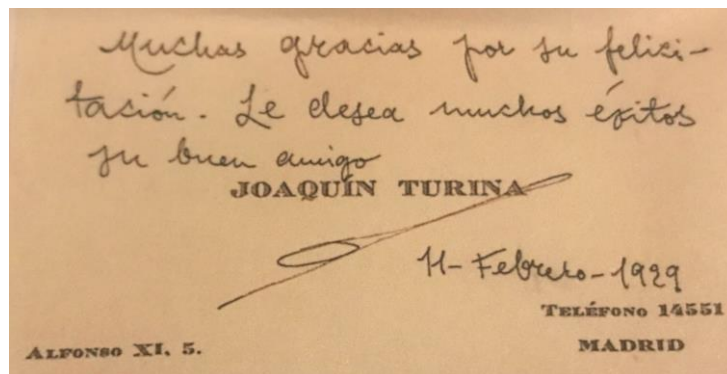 Muchas gracias por su felici-
tación. Le desea muchos éxitos
su buen amigo
JOAQUÍN TURINA
11-Febrero-1929
TELÉFONO 14551
ALFONSO XI, 5.
MADRID